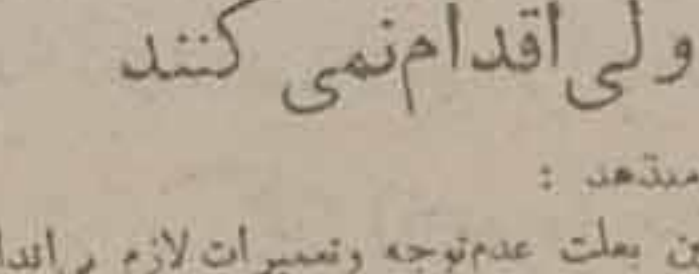 ولی اقدام نمی کنند
میدهد :
بعلت عدم توجه وتعمیرات لازم